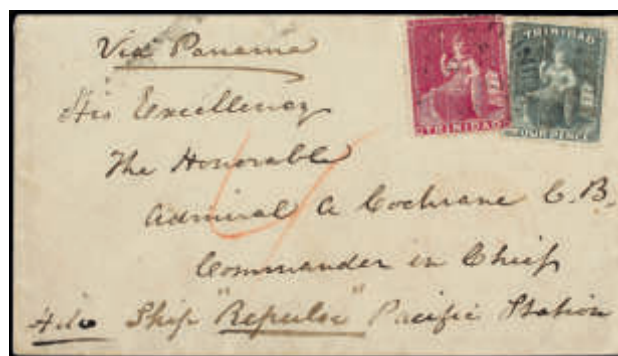 Via Panama
TRINIDAD
TRINIDAD
His Excellency
The Honorable
Admiral A Cochrane C.B.
Commander in Chief
Ship "Repulse" Pacific Station